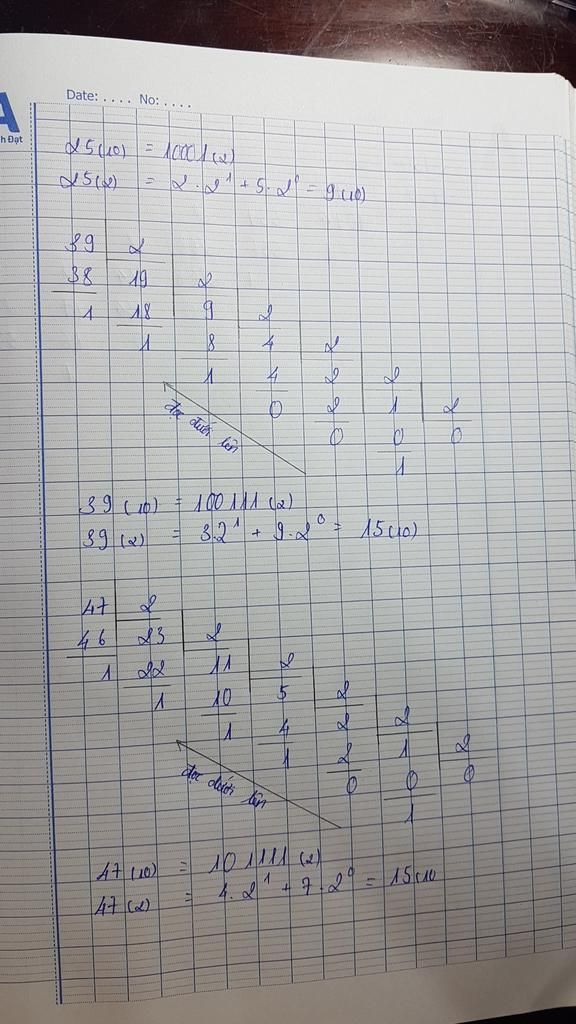 Date: .... No: ....
h Đạt
25(10) = 10001(2)
25(2) = 2.2¹ + 5.2⁰ = 9(10)
39 2
38 19 2
1 18 9 2
1 8 4 2
1 4 2 2
0 2 1 2
0 0 0
1
đọc dưới lên
39(10) = 100111(2)
39(2) = 3.2¹ + 9.2⁰ = 15(10)
47 2
46 23 2
1 22 11 2
1 10 5 2
1 4 2 2
1 2 1 2
0 0 0
1
đọc dưới lên
47(10) = 101111(2)
47(2) = 4.2¹ + 7.2⁰ = 15(10